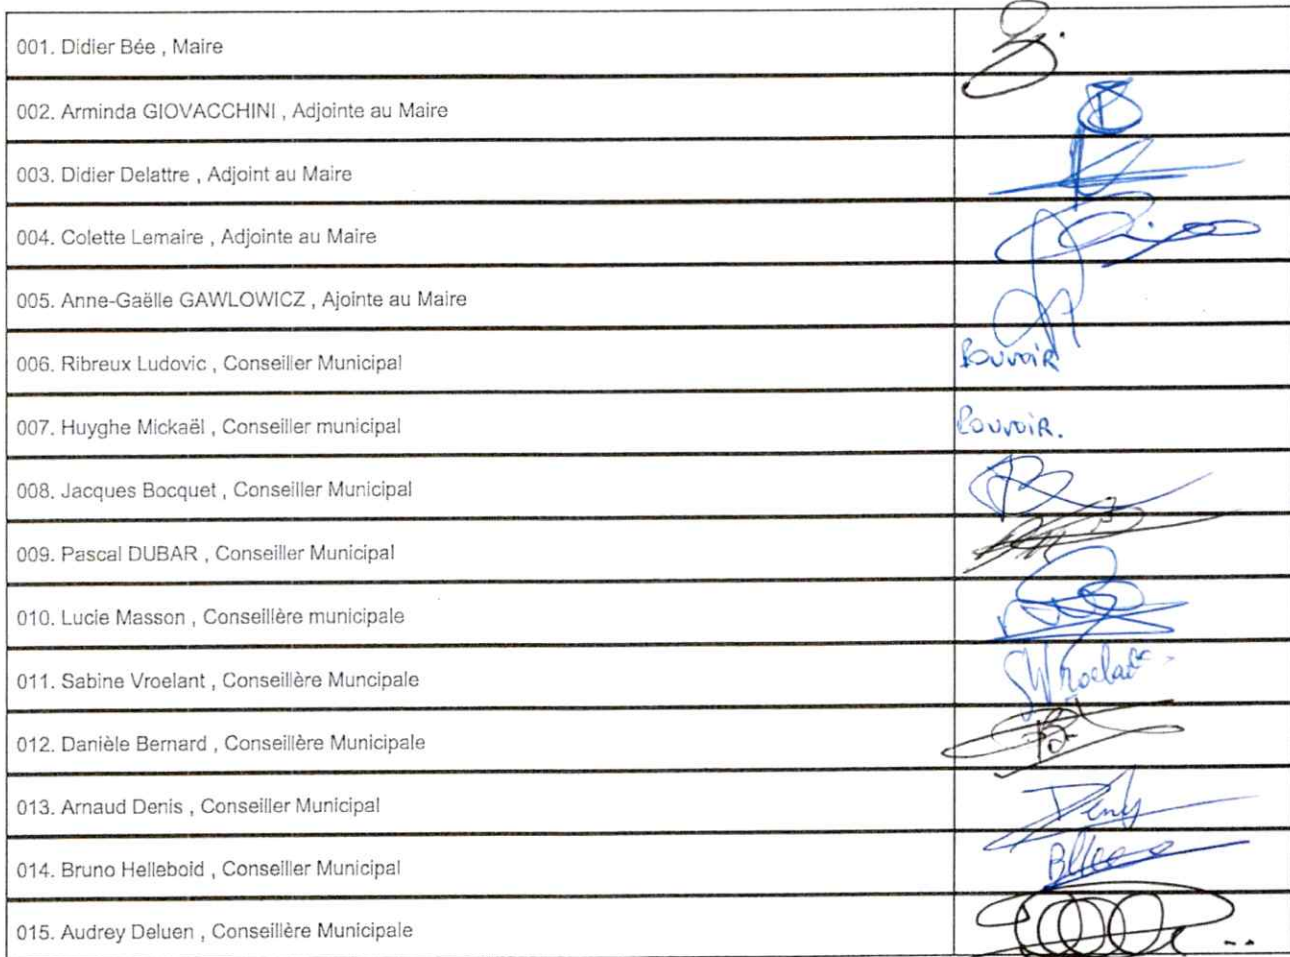 001. Didier Bée , Maire
002. Arminda GIOVACCHINI , Adjointe au Maire
003. Didier Delattre , Adjoint au Maire
004. Colette Lemaire , Adjointe au Maire
005. Anne-Gaëlle GAWLOWICZ , Ajointe au Maire
006. Ribreux Ludovic , Conseiller Municipal Pouvoir
007. Huyghe Mickaël , Conseiller municipal Pouvoir.
008. Jacques Bocquet , Conseiller Municipal
009. Pascal DUBAR , Conseiller Municipal
010. Lucie Masson , Conseillère municipale
011. Sabine Vroelant , Conseillère Muncipale
012. Danièle Bernard , Conseillère Municipale
013. Arnaud Denis , Conseiller Municipal
014. Bruno Helleboid , Conseiller Municipal
015. Audrey Deluen , Conseillère Municipale